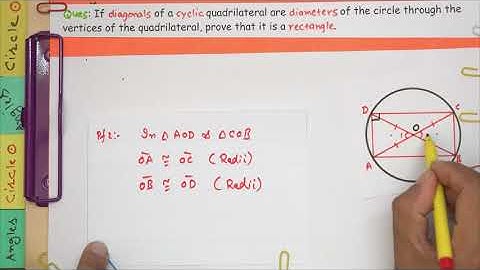 Ques: If diagonals of a cyclic quadrilateral are diameters of the circle through the
vertices of the quadrilateral, prove that it is a rectangle.
Circle
Circle
Angles
In △ AOD & △ COB
OA ≅ OC (Radii)
OB ≅ OD (Radii)
D
C
O
A
B